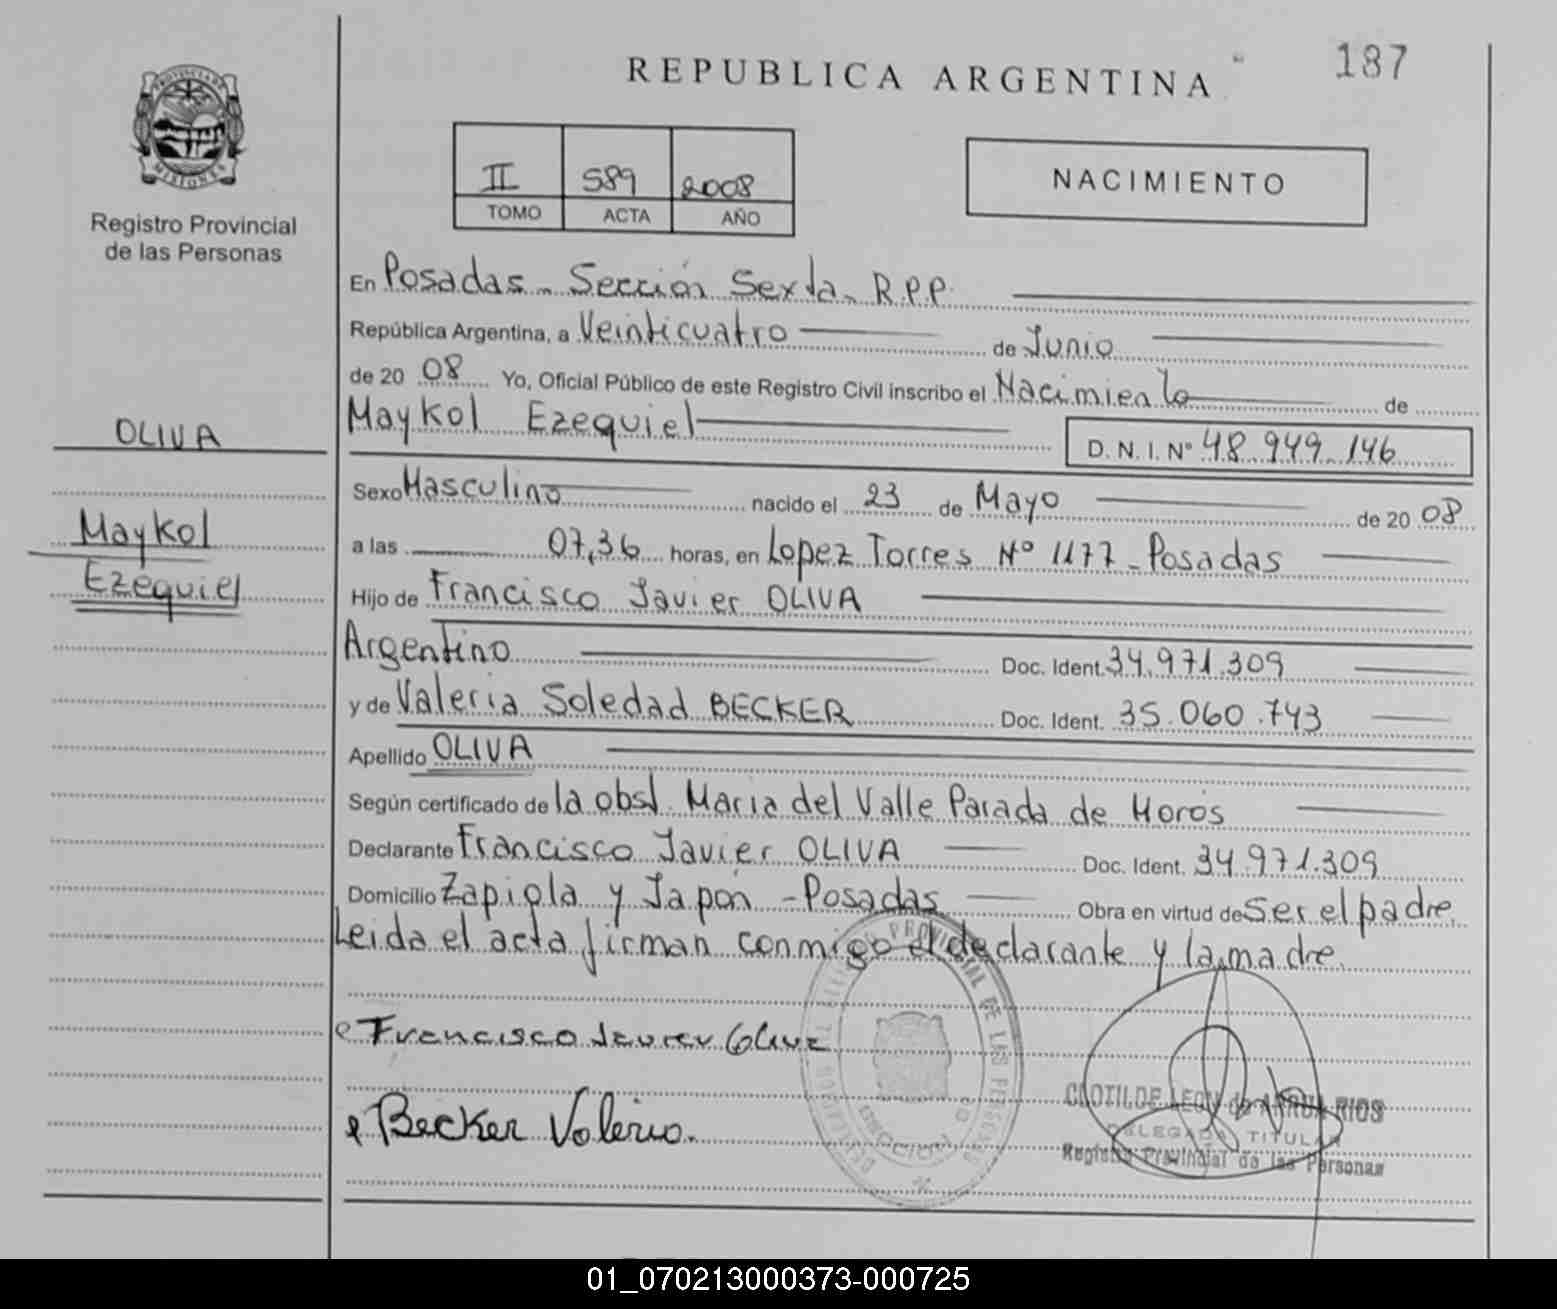 187
REPUBLICA ARGENTINA
PROVINCIA DE
MISIONES
Registro Provincial
de las Personas
II 589 2008
TOMO ACTA AÑO
NACIMIENTO
En Posadas - Sección Sexta - R.P.P.
República Argentina, a Veinticuatro de Junio
de 20 08 Yo, Oficial Público de este Registro Civil inscribo el Nacimiento de
Maykol Ezequiel
D. N. I. Nº 48.949.146
OLIVA
Maykol
Ezequiel
Sexo Masculino nacido el 23 de Mayo de 20 08
a las 07,36 horas, en Lopez Torres Nº 1177 - Posadas
Hijo de Francisco Javier OLIVA
Argentino Doc. Ident. 34.971.309
y de Valeria Soledad BECKER Doc. Ident. 35.060.743
Apellido OLIVA
Según certificado de la obst. Maria del Valle Parada de Moros
Declarante Francisco Javier OLIVA Doc. Ident. 34.971.309
Domicilio Zapiola y Japón - Posadas Obra en virtud de Ser el padre.
Leida el acta firman conmigo el declarante y la madre.
Francisco Javier Oliva
Becker Valeria.
CLOTILDE LEON de ARRUA RIOS
DELEGADA TITULAR
Registro Provincial de las Personas
01_070213000373-000725